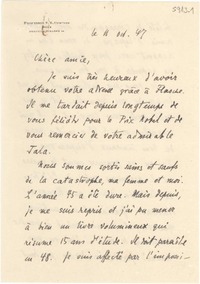 59331
le 11 oct. 47
Chère amie,
Je suis très heureux d'avoir
obtenu votre adresse grâce à
Il me tardait depuis longtemps de
vous féliciter pour le Prix Nobel et de
vous remercier de votre admirable
Tala.
Nous sommes sortis sains et saufs
de la catastrophe, ma femme et moi.
L'année 45 a été dure. Mais depuis,
je me suis repris et j'ai pu mener
à bien un livre volumineux qui
résume 15 ans d'étude. Il doit paraître
en 48. Je suis affecté par l'impos-